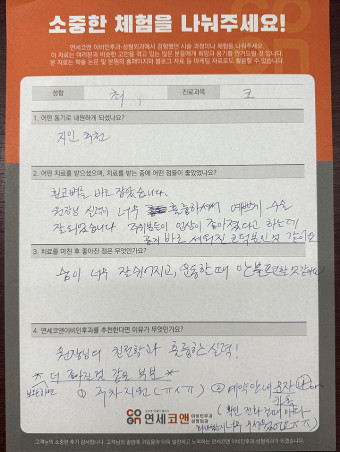 소중한 체험을 나눠주세요!
연세코앤 이비인후과·성형외과에서 경험했던 시술 과정이나 체험을 나눠주세요.
이 자료는 여러분과 비슷한 고민을 겪고 있는 많은 분들에게 희망과 용기를 안겨드릴 것 입니다.
본 자료는 학술 논문 및 본원의 홈페이지와 블로그 자료 등 마케팅 자료로도 활용될 수 있습니다.
성함 최 진료과목 코
1. 어떤 동기로 내원하게 되셨나요?
지인 추천
2. 어떤 치료를 받으셨으며, 치료를 받는 중에 어떤 점들이 좋았었나요?
휜코뼈를 바로 잡았습니다.
원장님 실력이 너무 훌륭하셔서 예쁘게 수술
잘 되었습니다. 주위분들이 인상이 좋아졌다고 하는데
코가 바로 세워진 코 덕분인 것 같아요
3. 치료를 마친 후 좋아진 점은 무엇인가요?
숨이 너무 잘 쉬어지고, 운동할 때
4. 연세코앤이비인후과를 추천한다면 이유가 무엇인가요?
원장님의 친절함과 훌륭한 실력!
① 주차 지원 (ㅠㅅㅠ) ② 예약안내 문자
연세코앤 이비인후과 성형외과
고객님의 소중한 후기 감사합니다. 고객님의 말씀에 귀기울여 더욱 발전하고 노력하는 연세코앤 이비인후과 성형외과가 되겠습니다.